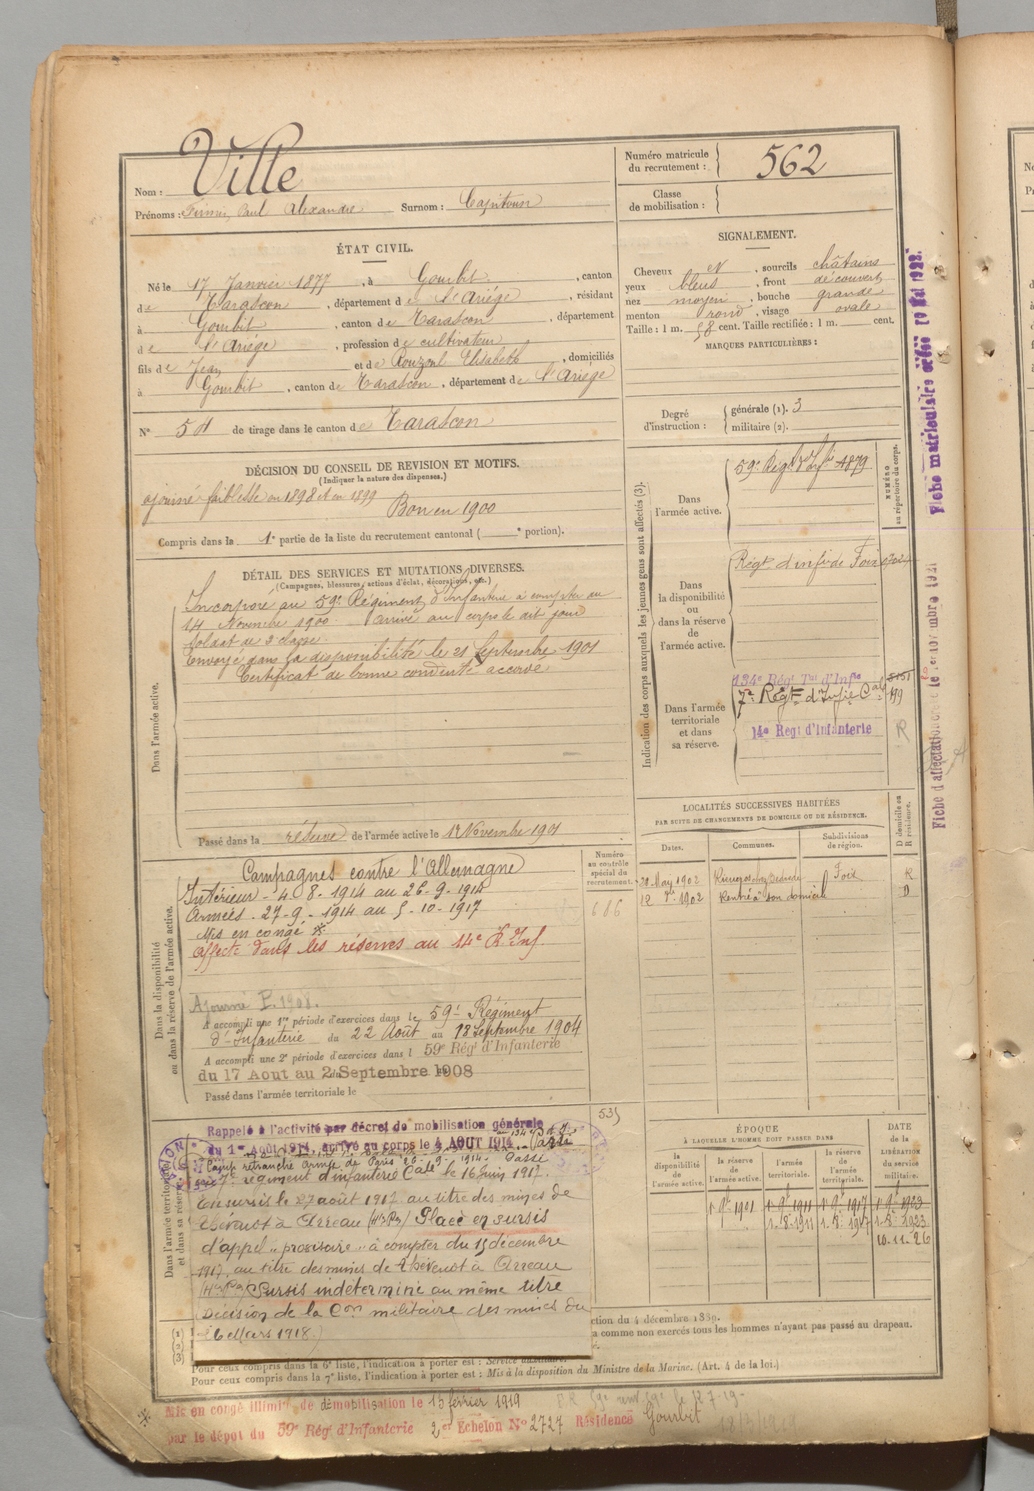 Nom : Ville
Prénoms : Firmin, Paul Alexandre Surnom : Capitoun
Numéro matricule du recrutement : 562
Classe de mobilisation :
ÉTAT CIVIL.
Né le 17 Janvier 1877, à Gourbit, canton
de Tarascon, département de l'Ariége, résidant
à Gourbit, canton de Tarascon, département
de l'Ariége, profession de cultivateur
fils de Jean et de Rouzoul Elisabeth, domiciliés
à Gourbit, canton de Tarascon, département de l'Ariége
N° 54 de tirage dans le canton de Tarascon
SIGNALEMENT.
Cheveux et, sourcils châtains
yeux bleus, front découvert
nez moyen, bouche grande
menton rond, visage ovale
Taille : 1 m. 58 cent. Taille rectifiée : 1 m. cent.
MARQUES PARTICULIÈRES :
Degré d'instruction : générale (1). 3
militaire (2).
DÉCISION DU CONSEIL DE REVISION ET MOTIFS.
(Indiquer la nature des dispenses.)
ajourné faiblesse en 1898 et en 1899
Bon en 1900
Compris dans la 1e partie de la liste du recrutement cantonal ( e portion).
DÉTAIL DES SERVICES ET MUTATIONS DIVERSES.
(Campagnes, blessures, actions d'éclat, décorations, etc.)
Dans l'armée active.
Incorporé au 59e Régiment d'Infanterie à compter du
14 Novembre 1900 arrivé au corps le dit jour
soldat de 2e classe
Envoyé dans la disponibilité le 21 Septembre 1901
Certificat de bonne conduite accordé
Passé dans la réserve de l'armée active le 1er Novembre 1901
Indication des corps auxquels les jeunes gens sont affectés (3).
NUMÉRO au répertoire du corps.
Dans l'armée active.
59e Régt d'Infie 4879
Dans la disponibilité ou dans la réserve de l'armée active.
Régt d'infie de Foix
Dans l'armée territoriale et dans sa réserve.
134e Régt Tal d'Infie
7e Régt d'Infie Cale
14e Régt d'Infanterie
R
Fiche matriculaire créée 20 Mai 1922.
Fiche d'affectation créée le 1er novembre 1921
LOCALITÉS SUCCESSIVES HABITÉES
PAR SUITE DE CHANGEMENTS DE DOMICILE OU DE RÉSIDENCE.
Dates. Communes. Subdivisions de région. D domicile ou R résidence.
20 May 1902 Foix R
1902 Rentré à son domicile D
Dans la disponibilité ou dans la réserve de l'armée active.
Numéro au contrôle spécial du recrutement.
686
Campagnes contre l'Allemagne
Intérieur - 4. 8. 1914 au 26-9-1914
Armées - 27-9-1914 au 5-10-1917
Mis en congé *
Affecté dans les réserves au 14e R. Inf.
Ajourné P. 1908.
A accompli une 1re période d'exercices dans le 59e Régiment
d'Infanterie du 22 Août au 18 Septembre 1904
A accompli une 2e période d'exercices dans l 59e Régt d'Infanterie
du 17 Aout au 2 Septembre 1908
Passé dans l'armée territoriale le
535
Dans l'armée territoriale et dans sa réserve
Rappelé à l'activité par décret de mobilisation générale
du 1er Août 1914, arrivé au corps le 4 AOUT 1914 Passé
Camp retranché armée de Paris 26-9-1914. Passé
7e régiment d'infanterie Cale le 16 juin 1917.
En sursis le 27 août 1917 au titre des mines de
Thévenot à Arreau (Htes Pyr) Placé en sursis
d'appel "provisoire" à compter du 15 décembre
1917, au titre des mines de Thévenot à Arreau
(Htes Pyr) Sursis indéterminé au même titre
Décision de la Con militaire des mines du
26 Mars 1918.
ÉPOQUE
À LAQUELLE L'HOMME DOIT PASSER DANS
la disponibilité de l'armée active. la réserve de l'armée active. l'armée territoriale. la réserve de l'armée territoriale.
DATE de la LIBÉRATION du service militaire.
1901 1911 1917 1923
1.8.1911 1.8.1917 1.8.1923
10-11-26
(1)
(2)
(3)
ction du 4 décembre 1889.
a comme non exercés tous les hommes n'ayant pas passé au drapeau.
Pour ceux compris dans la 6e liste, l'indication à porter est : Service auxiliaire.
Pour ceux compris dans la 7e liste, l'indication à porter est : Mis à la disposition du Ministre de la Marine. (Art. 4 de la loi.)
* Mis en congé illimité de démobilisation le 13 février 1919
par le dépot du 59e Régt d'Infanterie 2e Echelon N° 2727 Résidence Gourbit